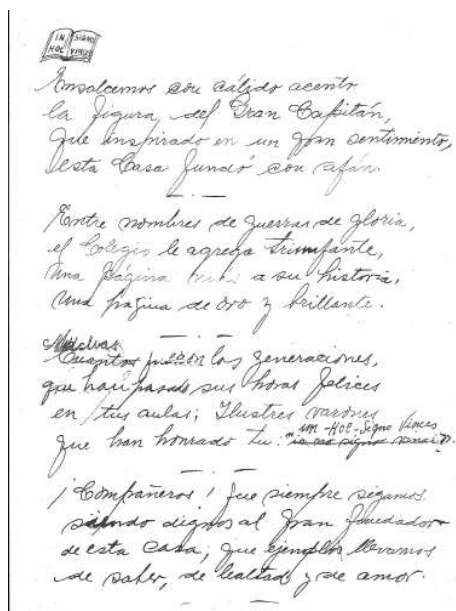 IN SIGNO
HOC VINCES
Ensalcemos con cálido acento
la figura del Gran Capitán,
que inspirado en un gran sentimiento,
esta Casa fundó con afán.
Entre nombres de guerras de gloria,
el Colegio le agrega triunfante,
una página más a su historia,
una página de oro y brillante.
Muchas
Cuantas son las generaciones,
que han pasado sus horas felices
en tus aulas; Ilustres varones
que han honrado tu: "IN-HOC-Signo Vinces
¡Compañeros! que siempre sigamos
siendo dignos al gran fundador
de esta casa; que ejemplos llevamos
de saber, de lealtad y de amor.